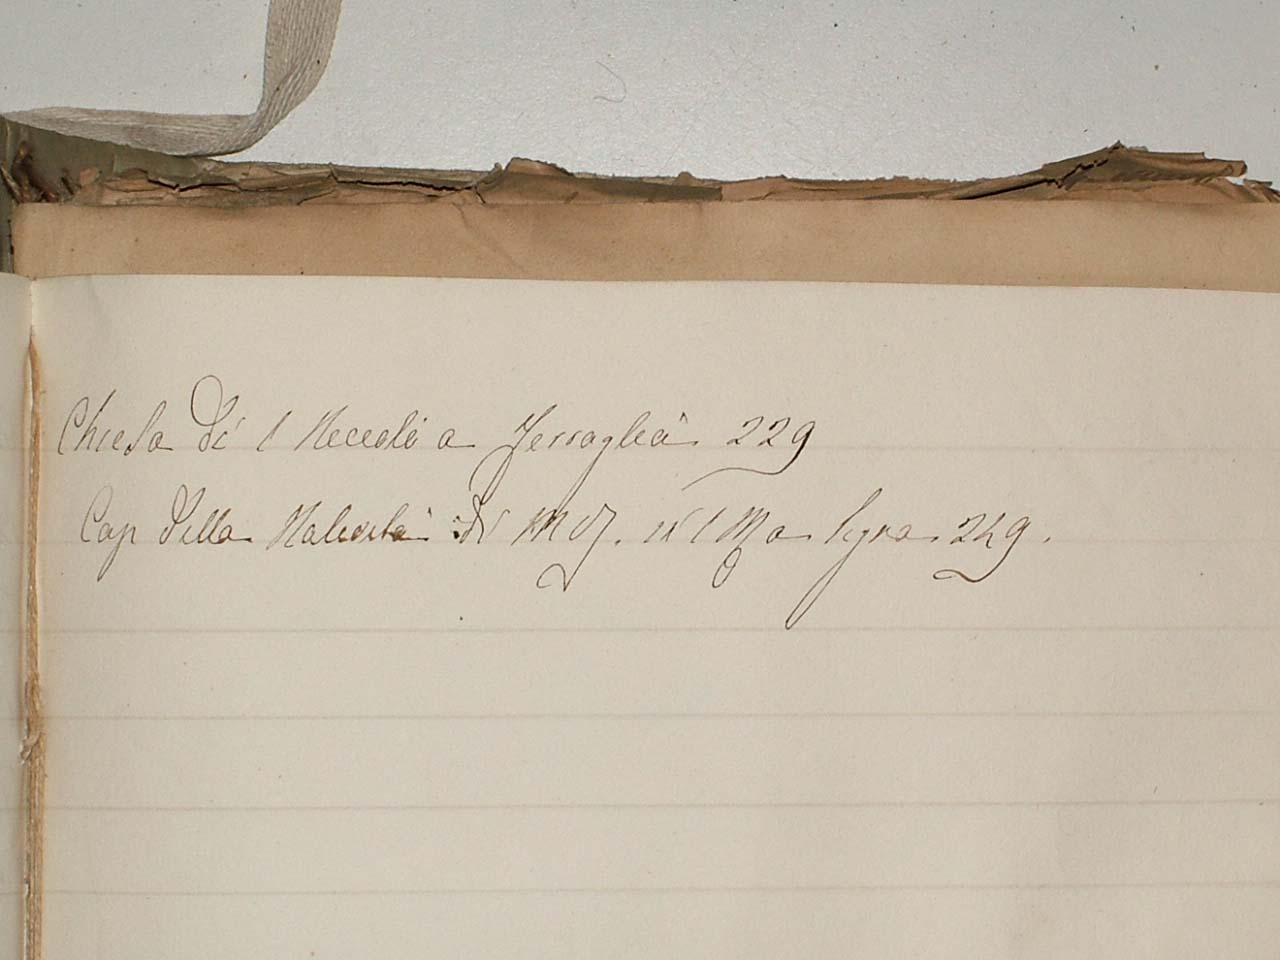 Chiesa di S Niccolò a Ferraglia 229
Cap della Natività di M V. in S Ma Nigra 249.